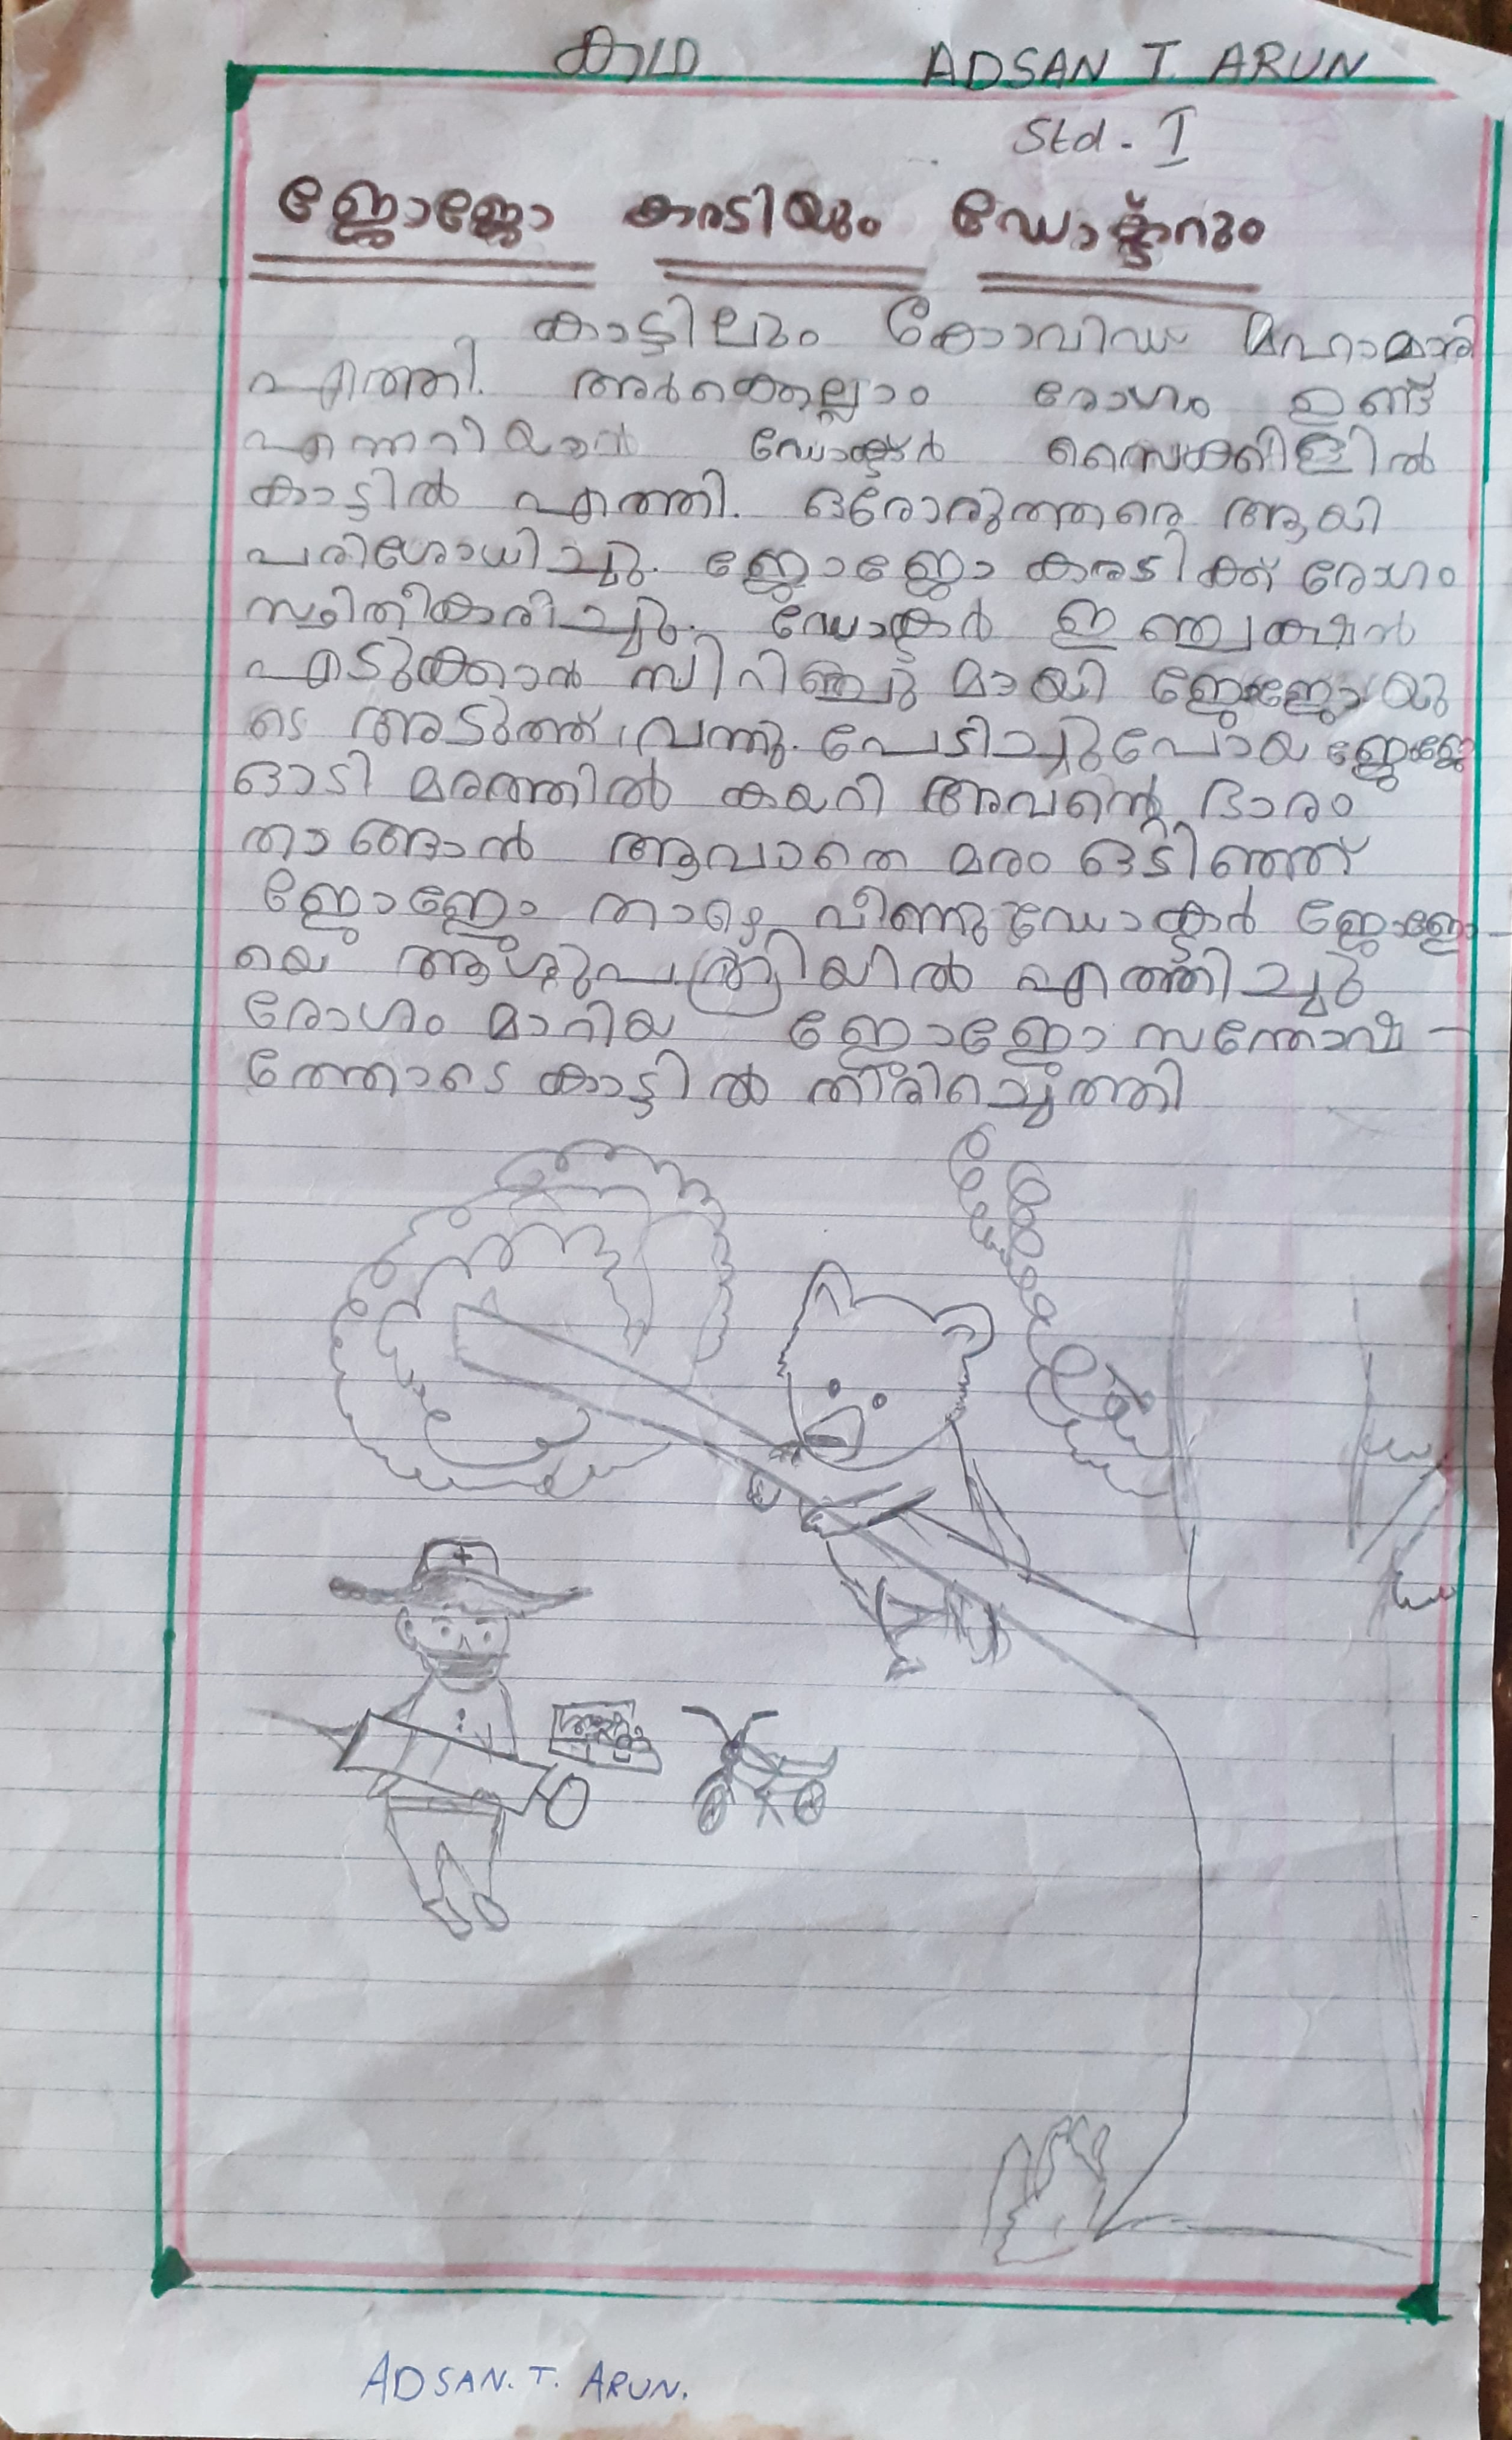 കഥ ADSAN T. ARUN
Std - I
ജോജോ കരടിയും ഡോക്ടറും
കാട്ടിലും കോവിഡ് മഹാമാരി
എത്തി. ആർക്കെല്ലാം രോഗം ഉണ്ട്
എന്നറിയാൻ ഡോക്ടർ സൈക്കിളിൽ
കാട്ടിൽ എത്തി. ഒരോരുത്തരെ ആയി
പരിശോധിച്ചു. ജോജോ കരടിക്ക് രോഗം
സ്ഥിതീകരിച്ചു. ഡോക്ടർ ഇഞ്ചക്ഷൻ
എടുക്കാൻ സിറിഞ്ചു മായി ജോജോയു
ടെ അടുത്ത് വന്നു. പേടിച്ചുപോയ ജോജോ
ഓടി മരത്തിൽ കയറി അവന്റെ ഭാരം
താങ്ങാൻ ആവാതെ മരം ഒടിഞ്ഞ്
ജോജോ താഴെ വീണു ഡോക്ടർ ജോജോ-
യെ ആശുപത്രിയിൽ എത്തിച്ചു
രോഗം മാറിയ ജോജോ സന്തോഷ-
ത്തോടെ കാട്ടിൽ തിരിച്ചെത്തി
ADSAN. T. ARUN.